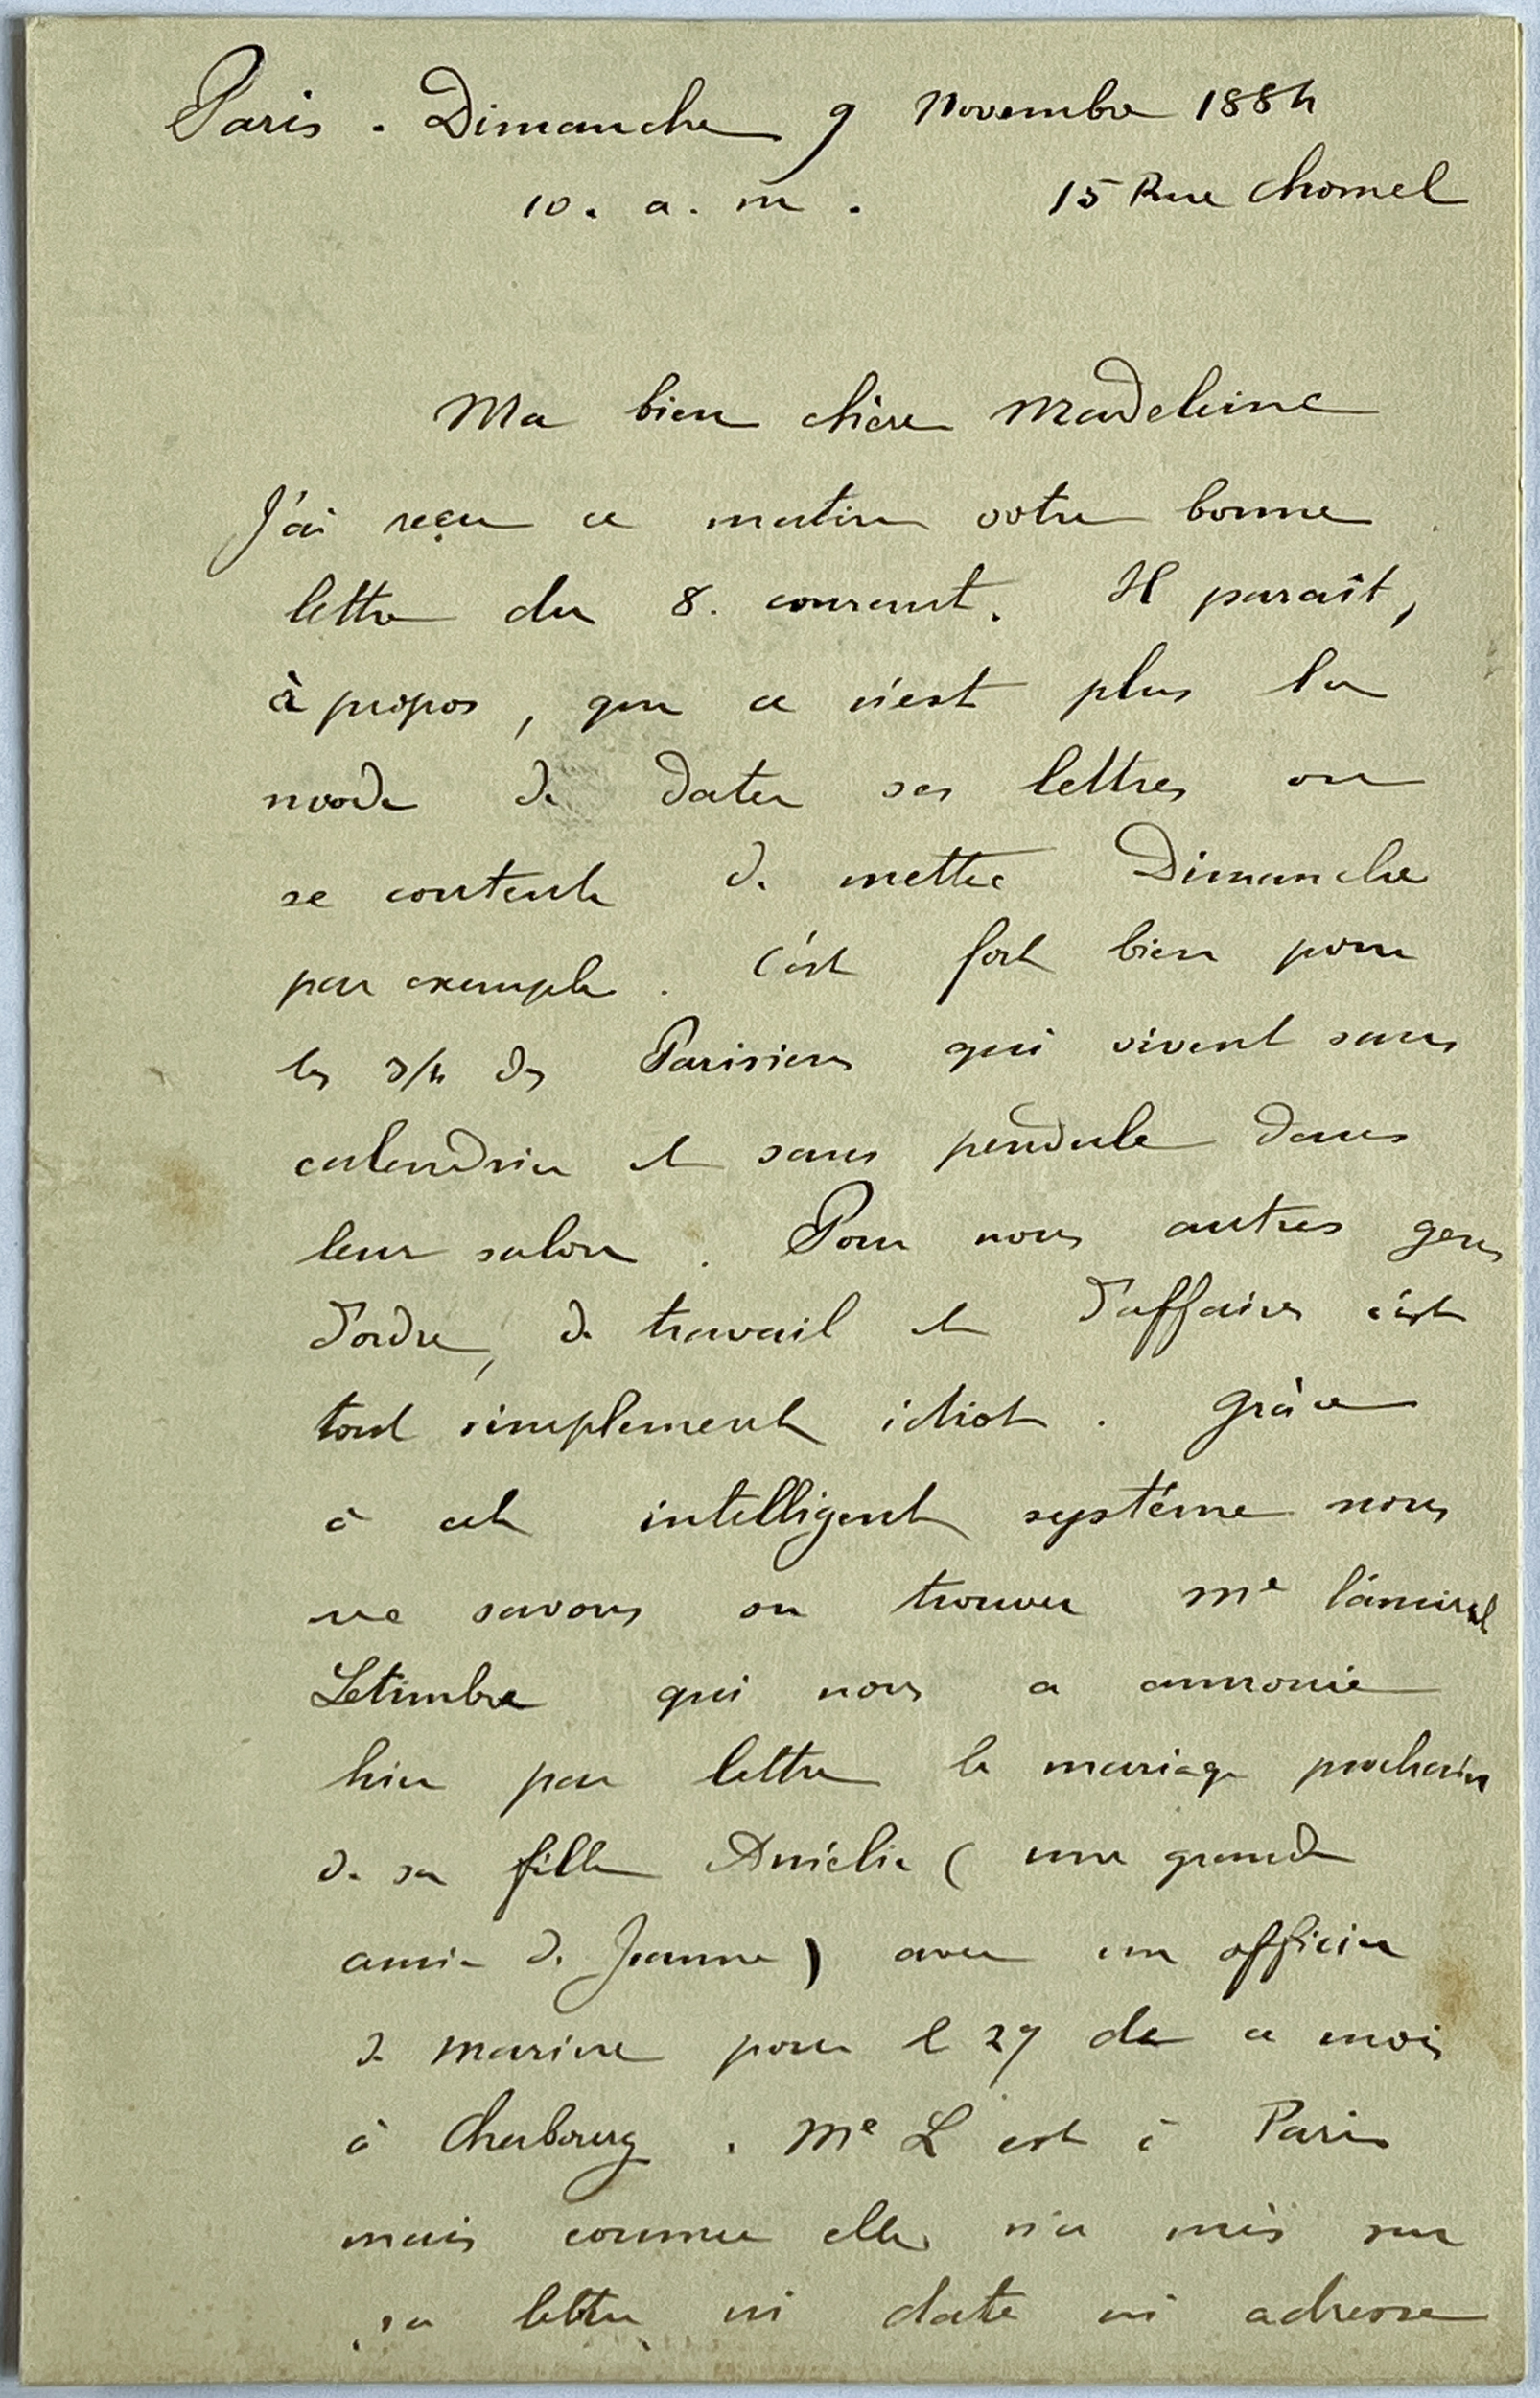 Paris . Dimanche 9 Novembre 1884
10. a. m. 15 Rue Chomel
Ma bien chère Madeleine
J'ai reçu ce matin votre bonne
lettre du 8. courant. Il paraît,
à propos, que ce n'est plus la
mode de dater ses lettres on
se contente de mettre Dimanche
par exemple. C'est fort bien pour
les 3/4 des Parisiens qui vivent sans
calendrier et sans pendule dans
leur salon. Pour nous autres gens
d'ordre, de travail et d'affaires c'est
tout simplement idiot. Grâce
à cet intelligent système nous
ne savons ou trouver Me l'amiral
Letimbre qui nous a annoncé
hier par lettre le mariage prochain
de sa fille Amélie (une grande
amie de Jeanne) avec un officier
de marine pour le 27 de ce mois
à Cherbourg. Me L est à Paris
mais comme elle n'a mis sur
sa lettre ni date ni adresse